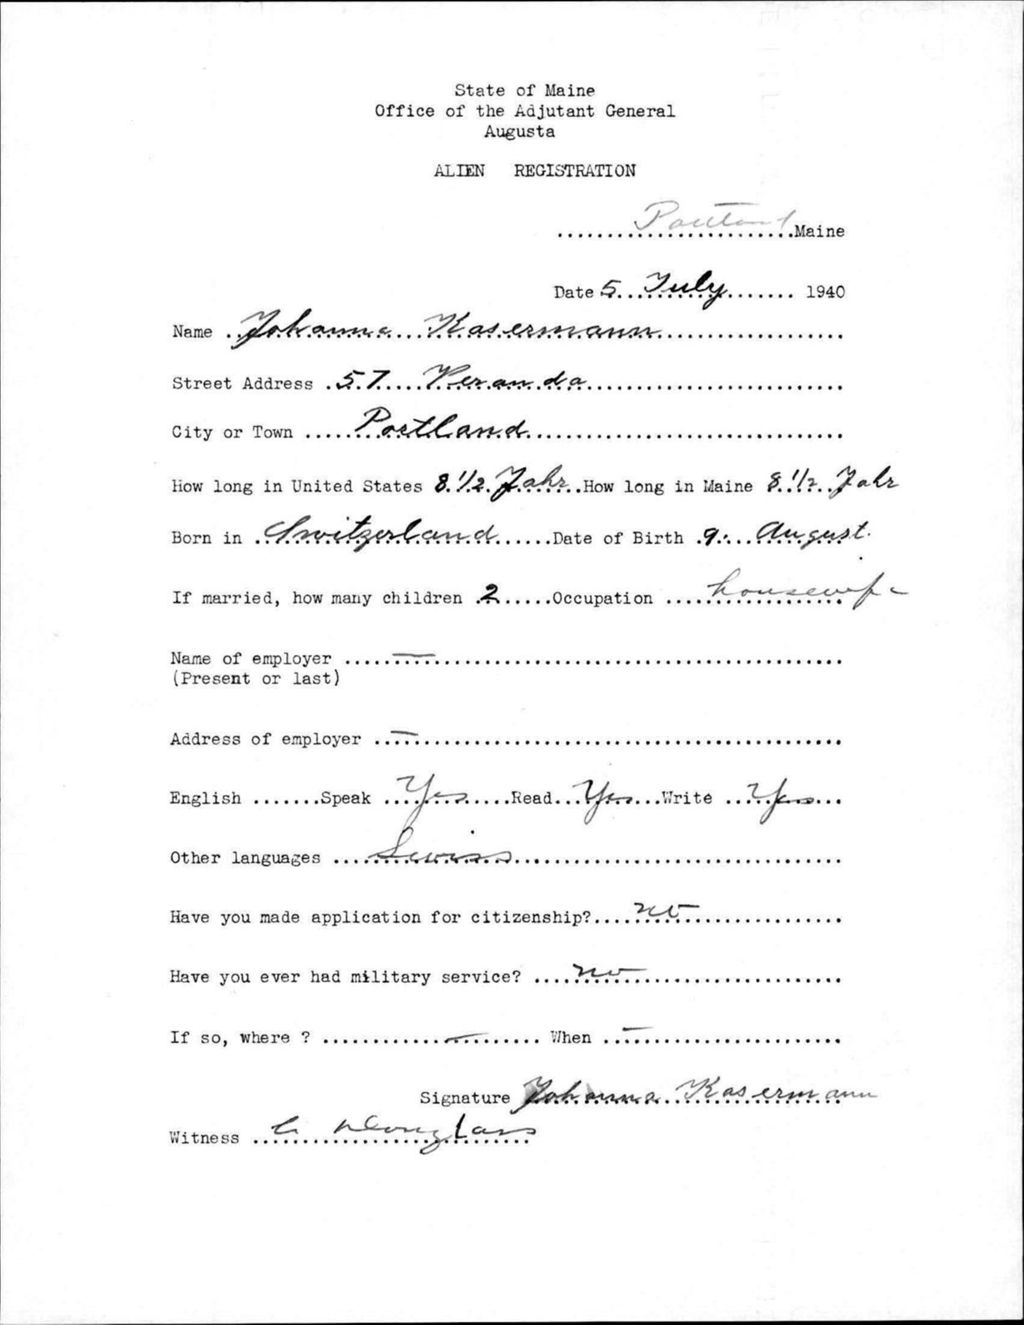 State of Maine
Office of the Adjutant General
Augusta
ALIEN REGISTRATION
Portland Maine
Date 5 July 1940
Name Johanna Kasermann
Street Address 57 Veranda
City or Town Portland
How long in United States 8 1/2 Jahr How long in Maine 8 1/2 Jahr
Born in Switzerland Date of Birth 9. August.
If married, how many children 2 Occupation housewife
Name of employer —
(Present or last)
Address of employer —
English Speak Yes Read Yes Write Yes
Other languages Swiss
Have you made application for citizenship? no
Have you ever had military service? no
If so, where ? — When —
Signature Johanna Kasermann
Witness C Douglass